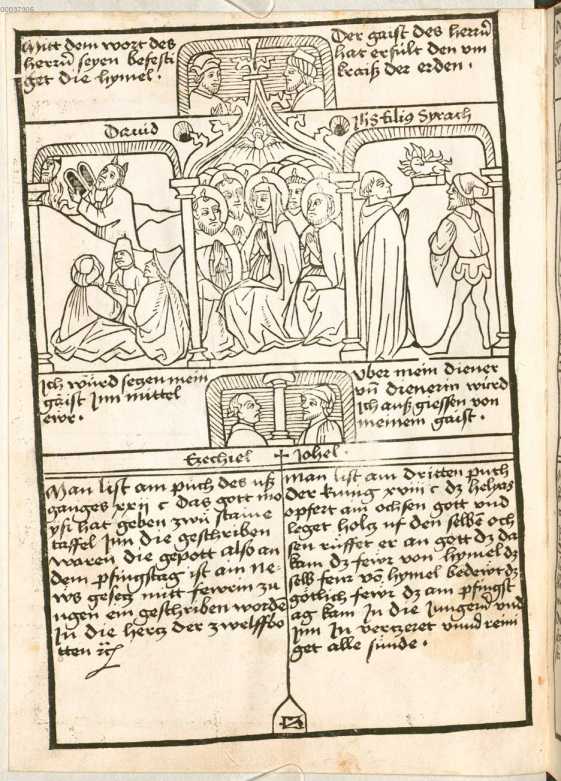 00037906
Mitt dem wort des
herrn seyen befesti
get die hymel .
Der gaist des herrn
hat erfült den um
kraiß der erden .
Dauid
Jhs filius Syrach
Ich würd seczen mein
gaist Jnn mittel
ewr .
Vber mein diener
un dienerin würd
Ich auß giessen von
meinem gaist .
Ezechiel
Johel .
Man list am puch des uß
ganges xxij c Das gott mo
ysi hat geben zwu staine
taffel Jnn die geschriben
waren die gepott also an
dem pfingstag ist ain ne-
ws gesecz mitt fewrin zu
ngen ein geschriben worde
Jn die hercz der zwelffbo
tten
Man list am dritten puch
der kunig xviij c dz helyas
opfert ain ochsen gott und
leget holcz uf den selbe och
sen ruffet er an gott dz da
kam dz fewr von hymel dz
selb fewr vo hymel bedewt dz
götlich fewr dz am pfingst
ag kam Jn die Jungern und
Jnn Jn verzeret unnd reini
get alle sünde .